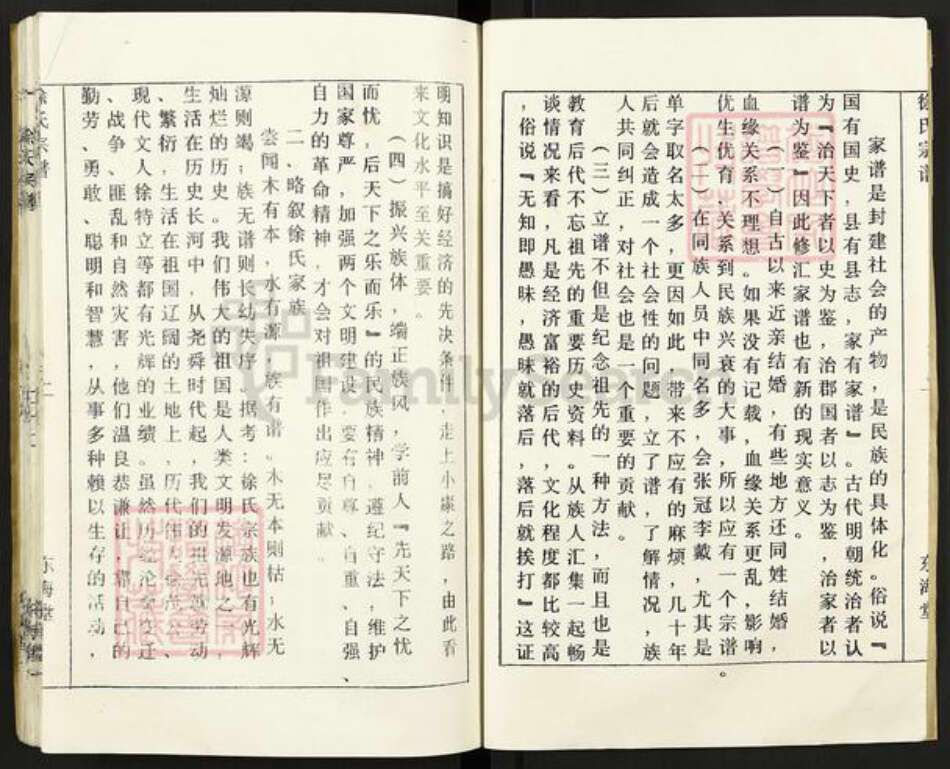 徐氏宗谱
东海堂
家谱是封建社会的产物，是民族的具体化。俗说『
国有国史，县有县志，家有家谱』。古代明朝统治者认
为『治天下者以史为鉴，治郡国者以志为鉴，治家者以
谱为鉴』因此修汇家谱也有新的现实意义。
（一）自古以来近亲结婚，有些地方还同姓结婚，
血缘关系不理想。如果没有记载，血缘关系更乱，影响
优生优育、关系到民族兴衰的大事，所以应有一个宗谱。
（二）在同族人员中同名多，会张冠李戴，尤其是
单字取名太多，更因如此，带来不应有的麻烦，几十年
后就会造成一个社会性的问题，立了谱，了解情况，族
人共同纠正，对社会也是一个重要的贡献。
（三）立谱不但是纪念祖先的一种方法，而且也是
教育后代不忘祖先的重要历史资料。从族人汇集一起畅
谈情况来看，凡是经济富裕的后代，文化程度都比较高
，俗说『无知即愚昧，愚昧就落后，落后就挨打』这证
明知识是搞好经济的先决条件，走上小康之路，由此看
来文化水平至关重要。
（四）振兴族体，端正族风，学前人『先天下之忧
而忧，后天下之乐而乐』的民族精神，遵纪守法，维护
国家尊严，加强两个文明建设，要有自尊、自重、自强、
自力的革命精神，才会对祖国作出应尽贡献。
二、略叙徐氏家族
尝闻木有本，水有源，族有谱。木无本则枯；水无
源则竭；族无谱则长幼失序。据考：徐氏宗族也有光辉
灿烂的历史。我们伟大的祖国是人类文明发源地之一，
生活在历史长河中，从尧舜时代起，我们的祖先就劳动
、繁衍，生活在祖国辽阔的土地上，历代伟人
现代文人徐特立等都有光辉的业绩。虽然历经沧
、战争、匪乱和自然灾害，他们温良恭谦让，靠自己的
勤劳、勇敢、聪明和智慧，从事多种赖以生存的活动，
徐氏宗谱
东海堂